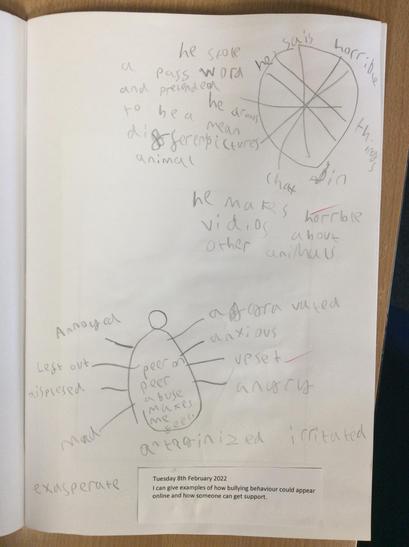 he stole
a pass word
and pretended
to be a
different
animal
he draws
mean
pictures
he sais horrible things
in chat
he makes horrible
vidios about
other animals
Annoyed
Left out
mad
exasperate
peer on
peer
abuse
makes
me
feel
anxious
upset
angry
antaginized irritated
Tuesday 8th February 2022
I can give examples of how bullying behaviour could appear
online and how someone can get support.